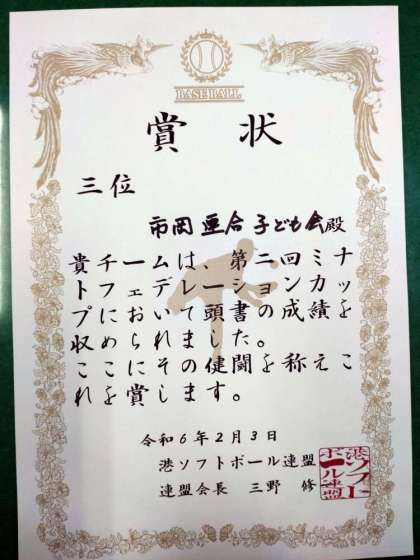 BASEBALL
賞状
三位
市岡亜合子ども会殿
貴チームは、第二回ミナ
トフェデレーションカッ
プにおいて頭書の成績を
収められました。
ここにその健闘を称えこ
れを賞します。
令和6年2月3日
港ソフトボール連盟
連盟会長 三野 修
港ソフト
ボール連盟